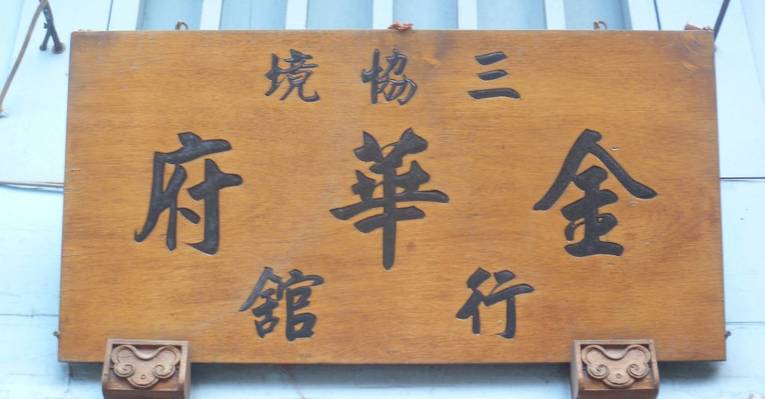 三協境
金華府
行館